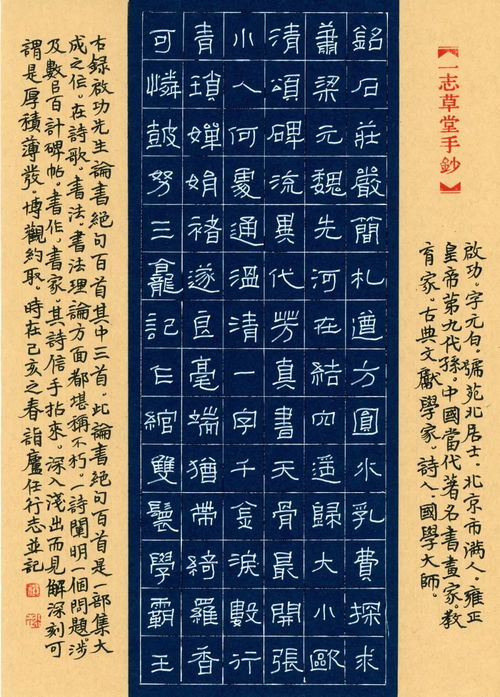 【一志草堂手鈔】
啟功，字元白，號苑北居士。北京市滿人。雍正
皇帝第九代孫。中國當代著名書畫家。教
育家。古典文獻學家。詩人。國學大師。
銘石莊嚴簡札遒方圓水乳費探求
蕭梁元魏先河在結穴遥歸大小歐
清頌碑流異代芳真書天骨最開張
小人何處通溫清一字千金淚數行
青瑣嬋娟褚遂良毫端猶帶綺羅香
可憐鼓努三龕記仁綰雙鬟學霸王
右錄啟功先生論書絕句百首其中三首，此論書絕句百首是一部集大
成之作。在詩歌。書法。書法理論方面都堪稱不朽。詩闡明一個問題。涉
及數㠯百計碑帖。書作。書家。其詩信手拈來。深入淺出而見解深刻可
謂是厚積薄發。博觀約取。時在己亥之春詣廬任行志並記